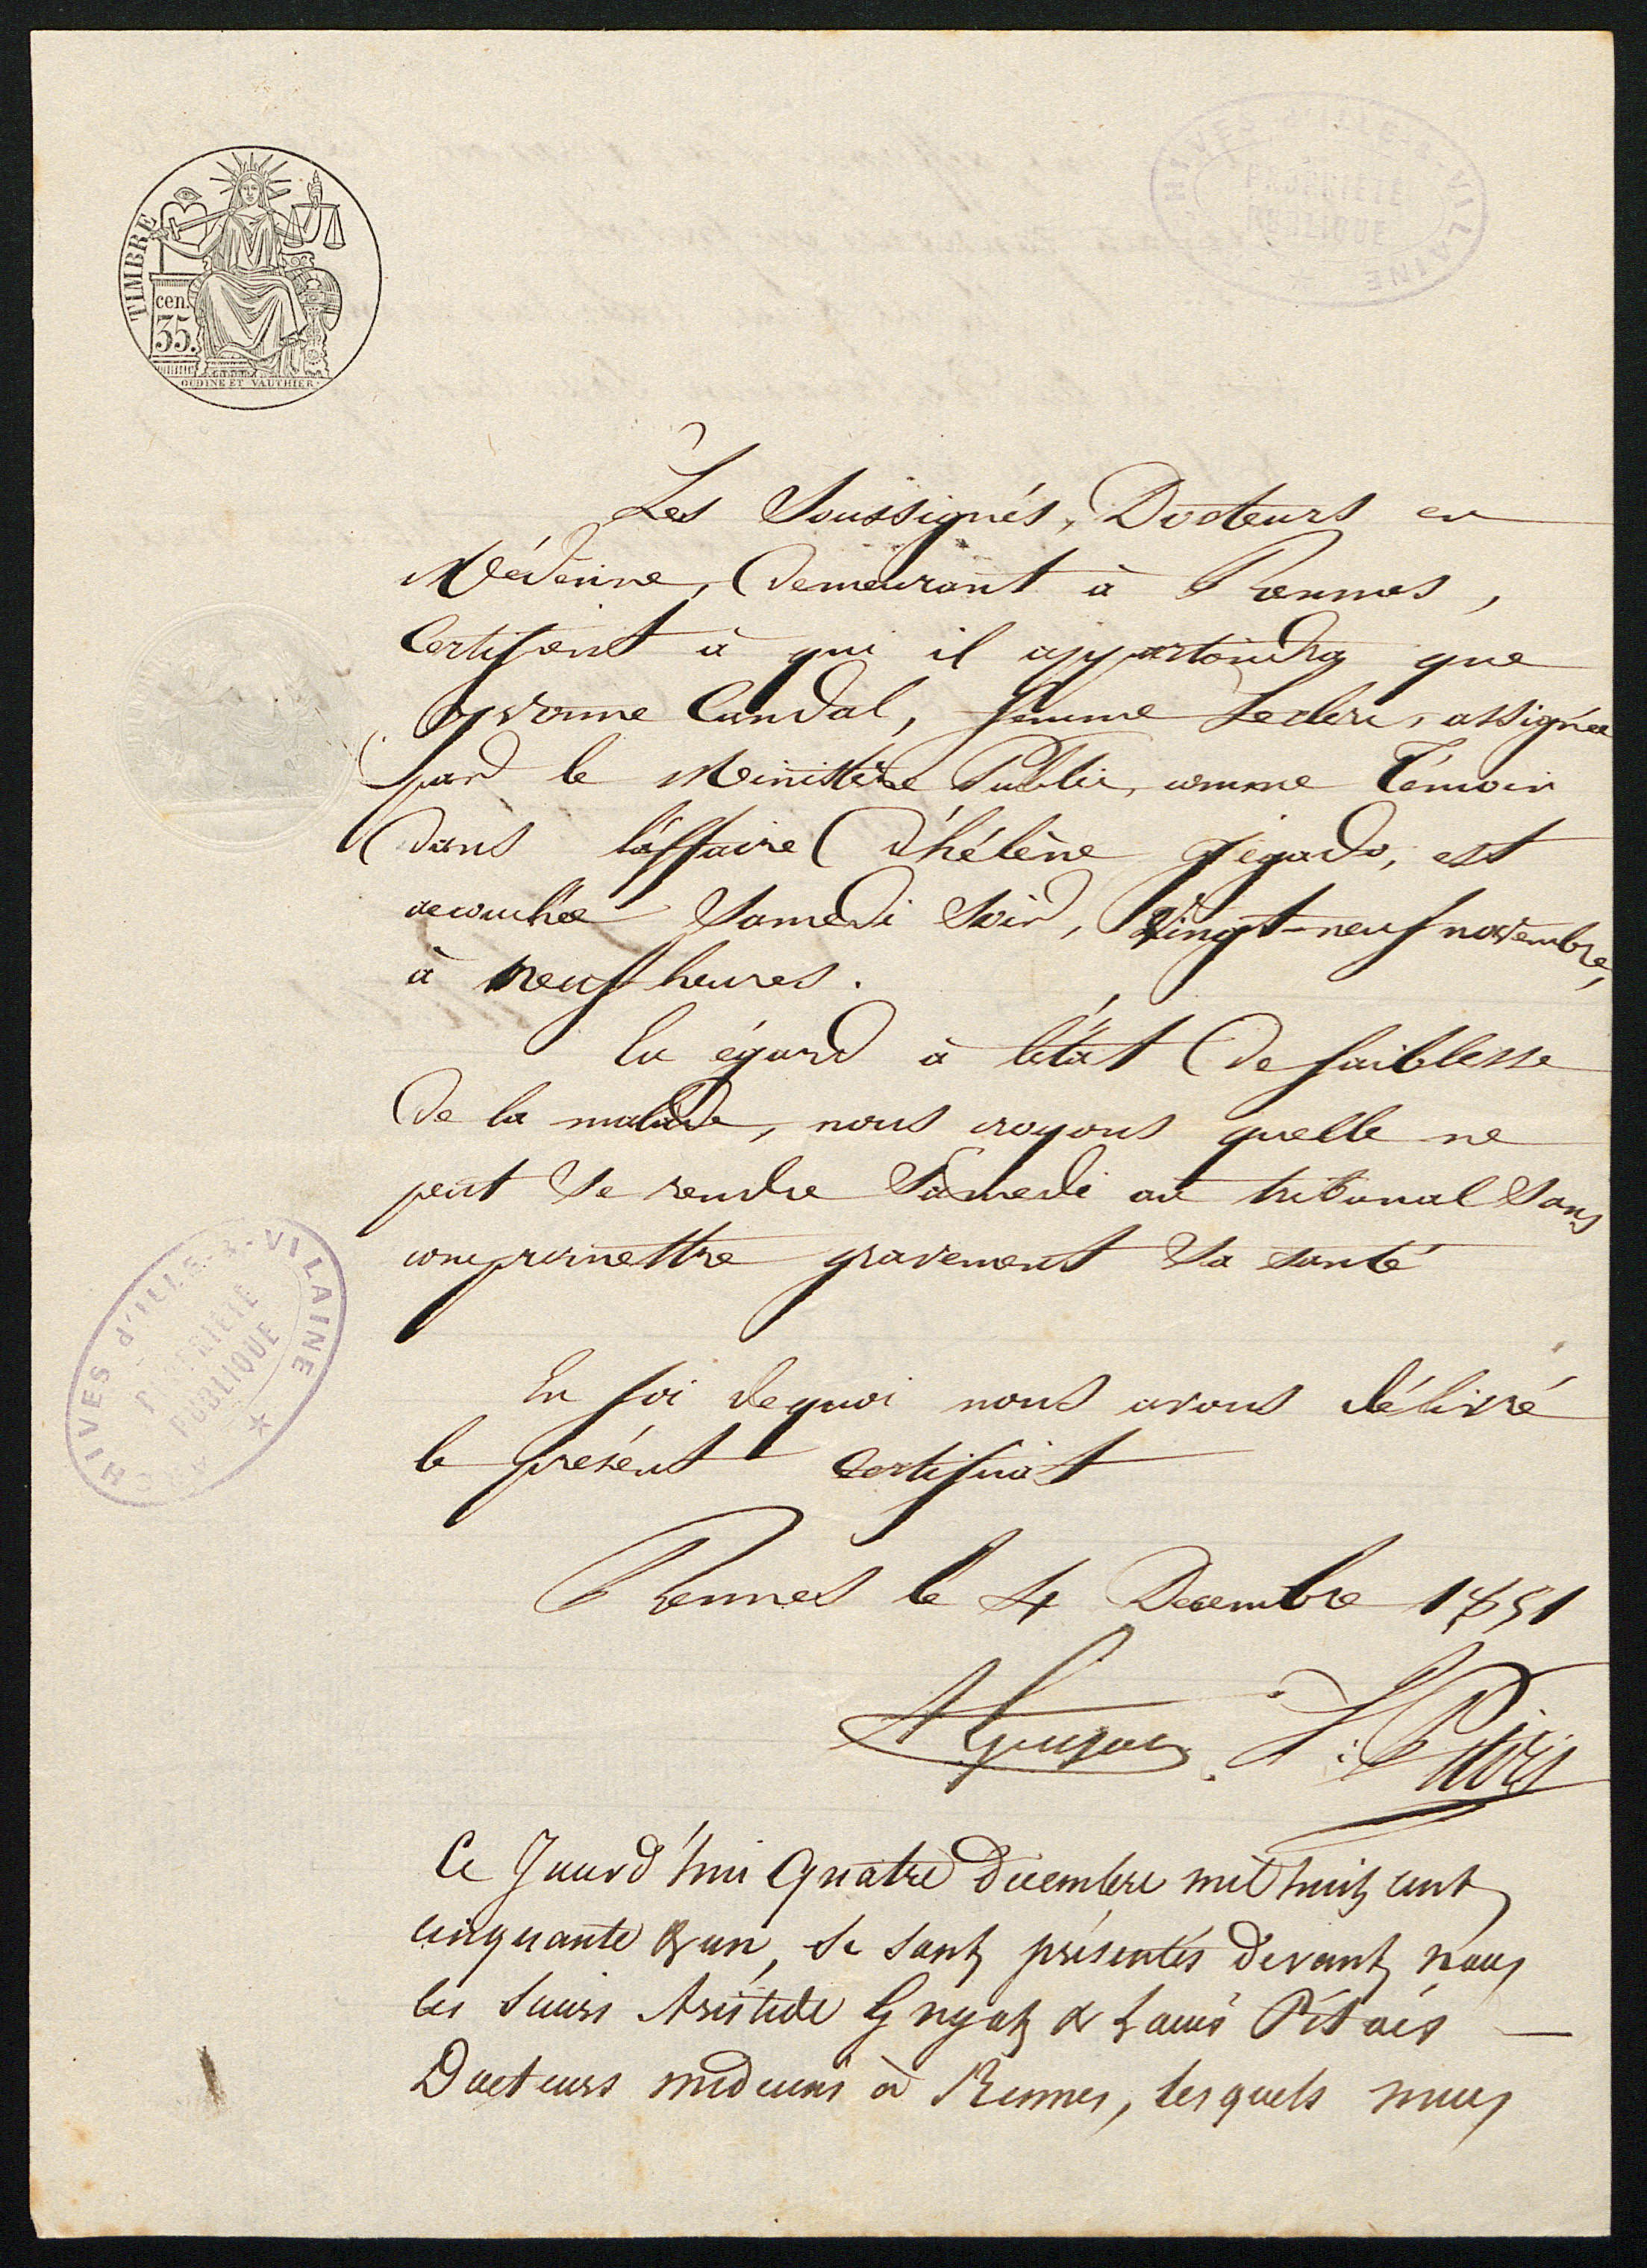 TIMBRE
cen.
35.
OUDINE ET VAUTHIER
ARCHIVES d'ILLE-&-VILAINE
PROPRIÉTÉ
PUBLIQUE
Les Soussignés, Docteurs en
Médecine, demeurant à Rennes,
Certifient à qui il appartiendra que
Yvonne Candal, femme Leclerc, assignée
par le Ministère Public, comme Témoin
dans l'affaire d'hélène Jégado, est
accouchée Samedi Soir, Vingt-neuf novembre,
à neuf heures.
Eu égard à l'état de faiblesse
de la malade, nous croyons quelle ne
peut se rendre Samedi au tribunal Sans
compromettre gravement sa santé
ARCHIVES d'ILLE-&-VILAINE
PROPRIÉTÉ
PUBLIQUE
En foi de quoi nous avons délivré
le présent certificat
Rennes le 4 Decembre 1851
A Guyot. L. Pitois
Ce Jourd'hui Quatre décembre mil huit cent
cinquante & un, se sont présentés devant nous
les Sieurs Aristide Guyot & Louis Pitois —
Docteurs médecins à Rennes, lesquels nous